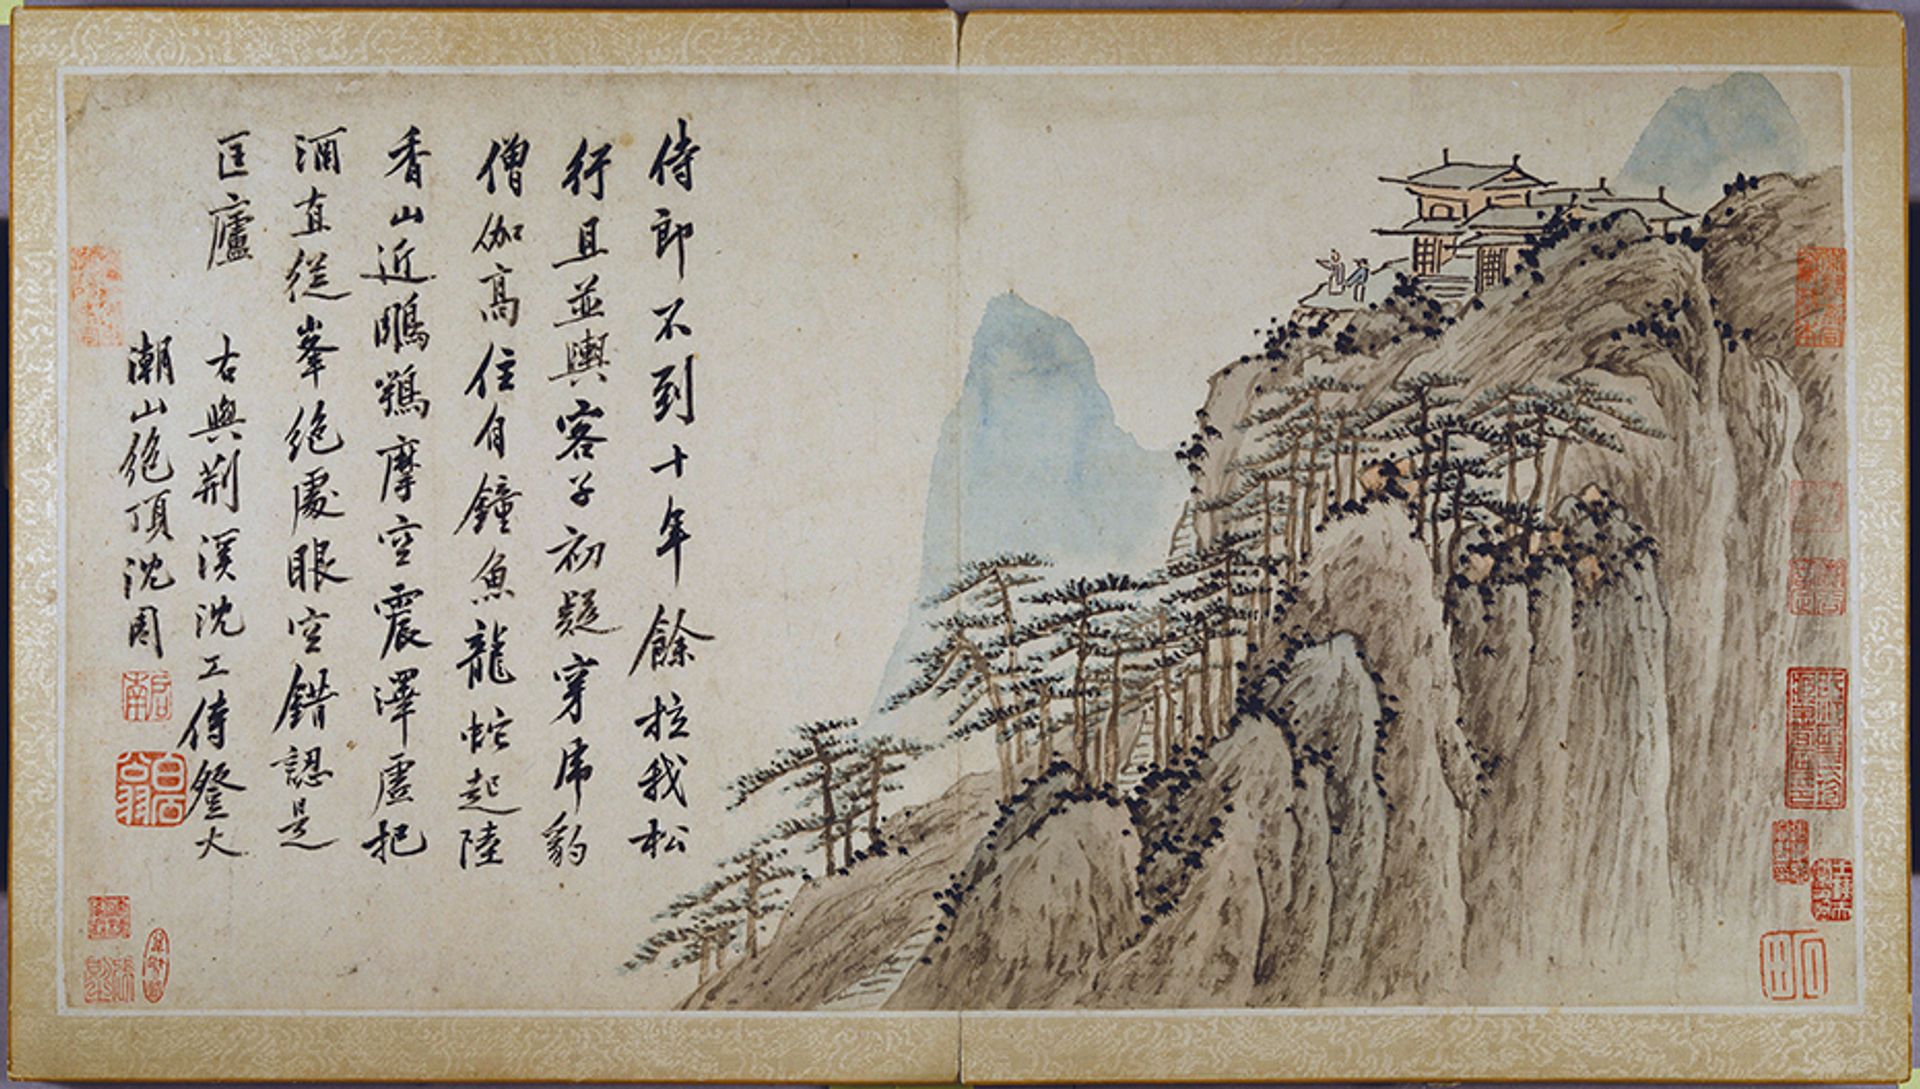 侍郎不到十年餘拉我松
行且並輿客子初疑穿席豹
僧伽高住有鐘魚龍蛇起陸
香山近鵰鶚摩空震澤虛把
酒直從峯絶處眼空錯認是
匡廬
古與荆溪沈工侍登大
潮山絶頂沈周
启南
白石翁